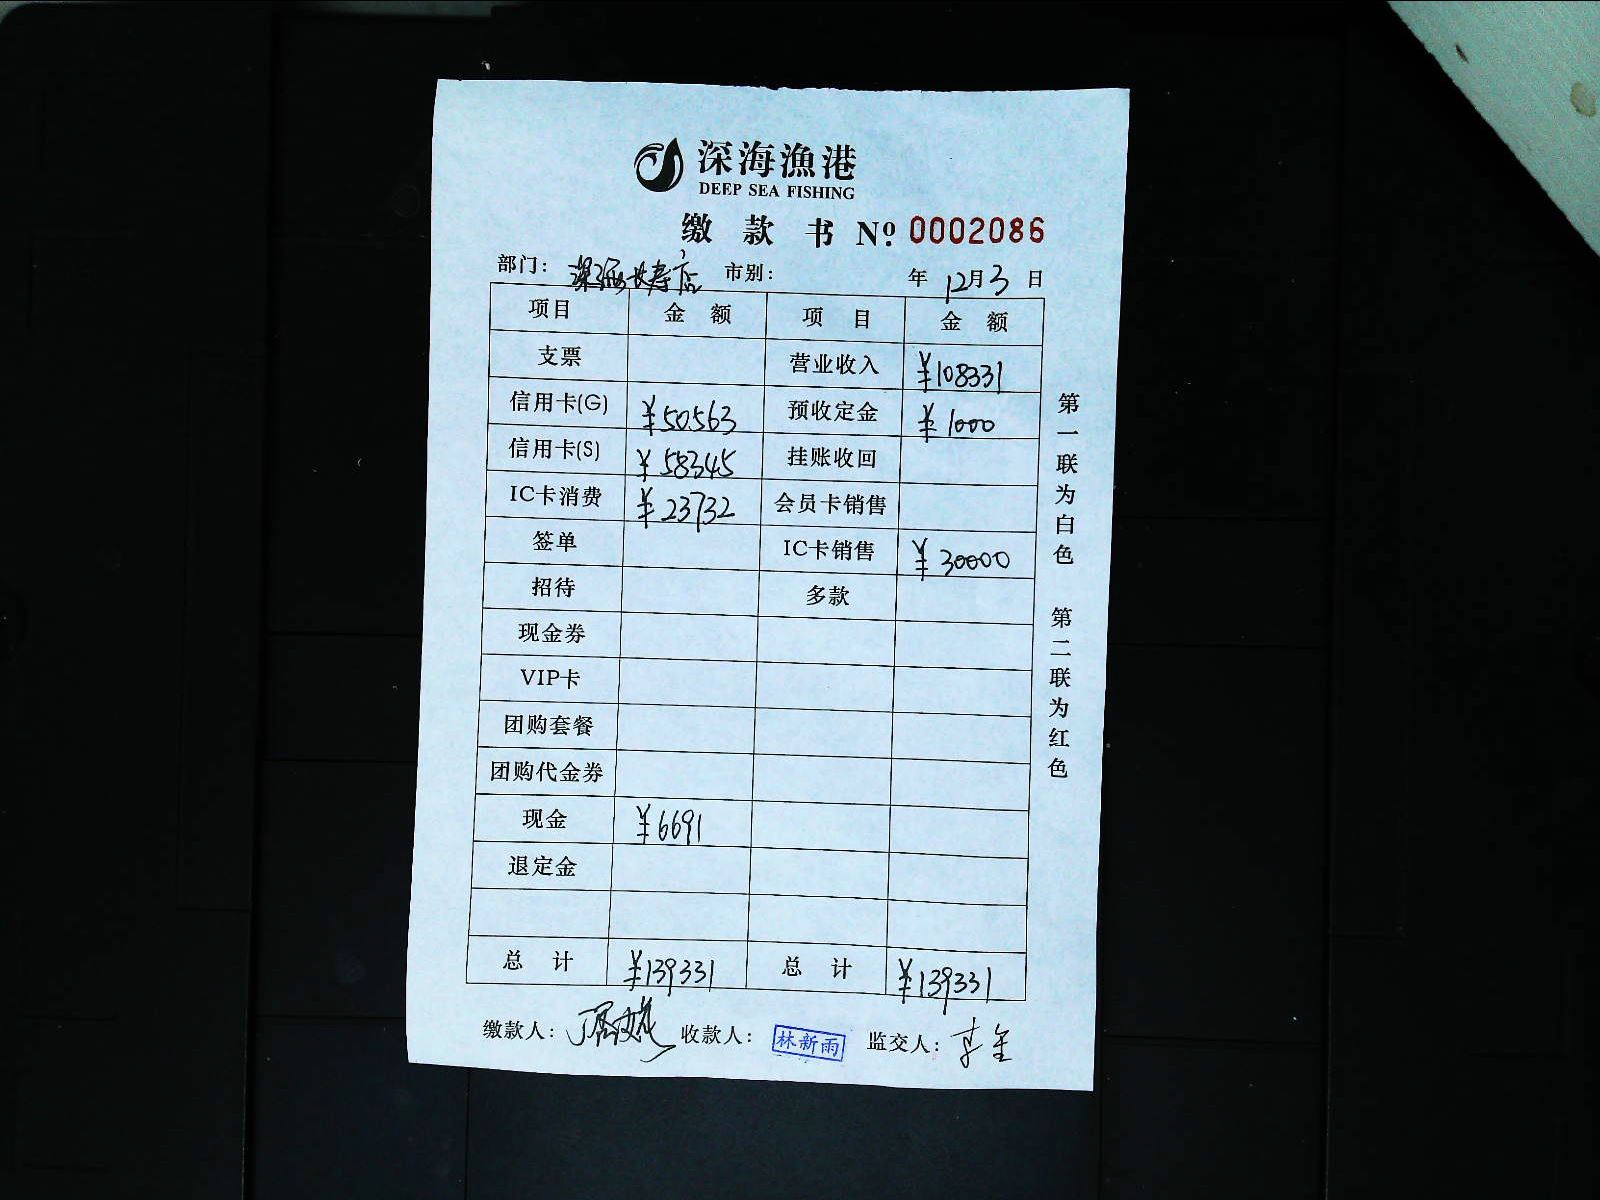 深海漁港
DEEP SEA FISHING
缴 款 书 Nº 0002086
部门: 深海长寿店 市别: 年 12月3日
项目 金 额 项 目 金 额
支票 营业收入 ¥108331
信用卡(G) ¥50563 预收定金 ¥1000
信用卡(S) ¥58345 挂账收回
IC卡消费 ¥23732 会员卡销售
签单 IC卡销售 ¥30000
招待 多款
现金券
VIP卡
团购套餐
团购代金券
现金 ¥6691
退定金
总 计 ¥139331 总 计 ¥139331
缴款人: 收款人: 林新雨 监交人: 李金
第一联为白色 第二联为红色